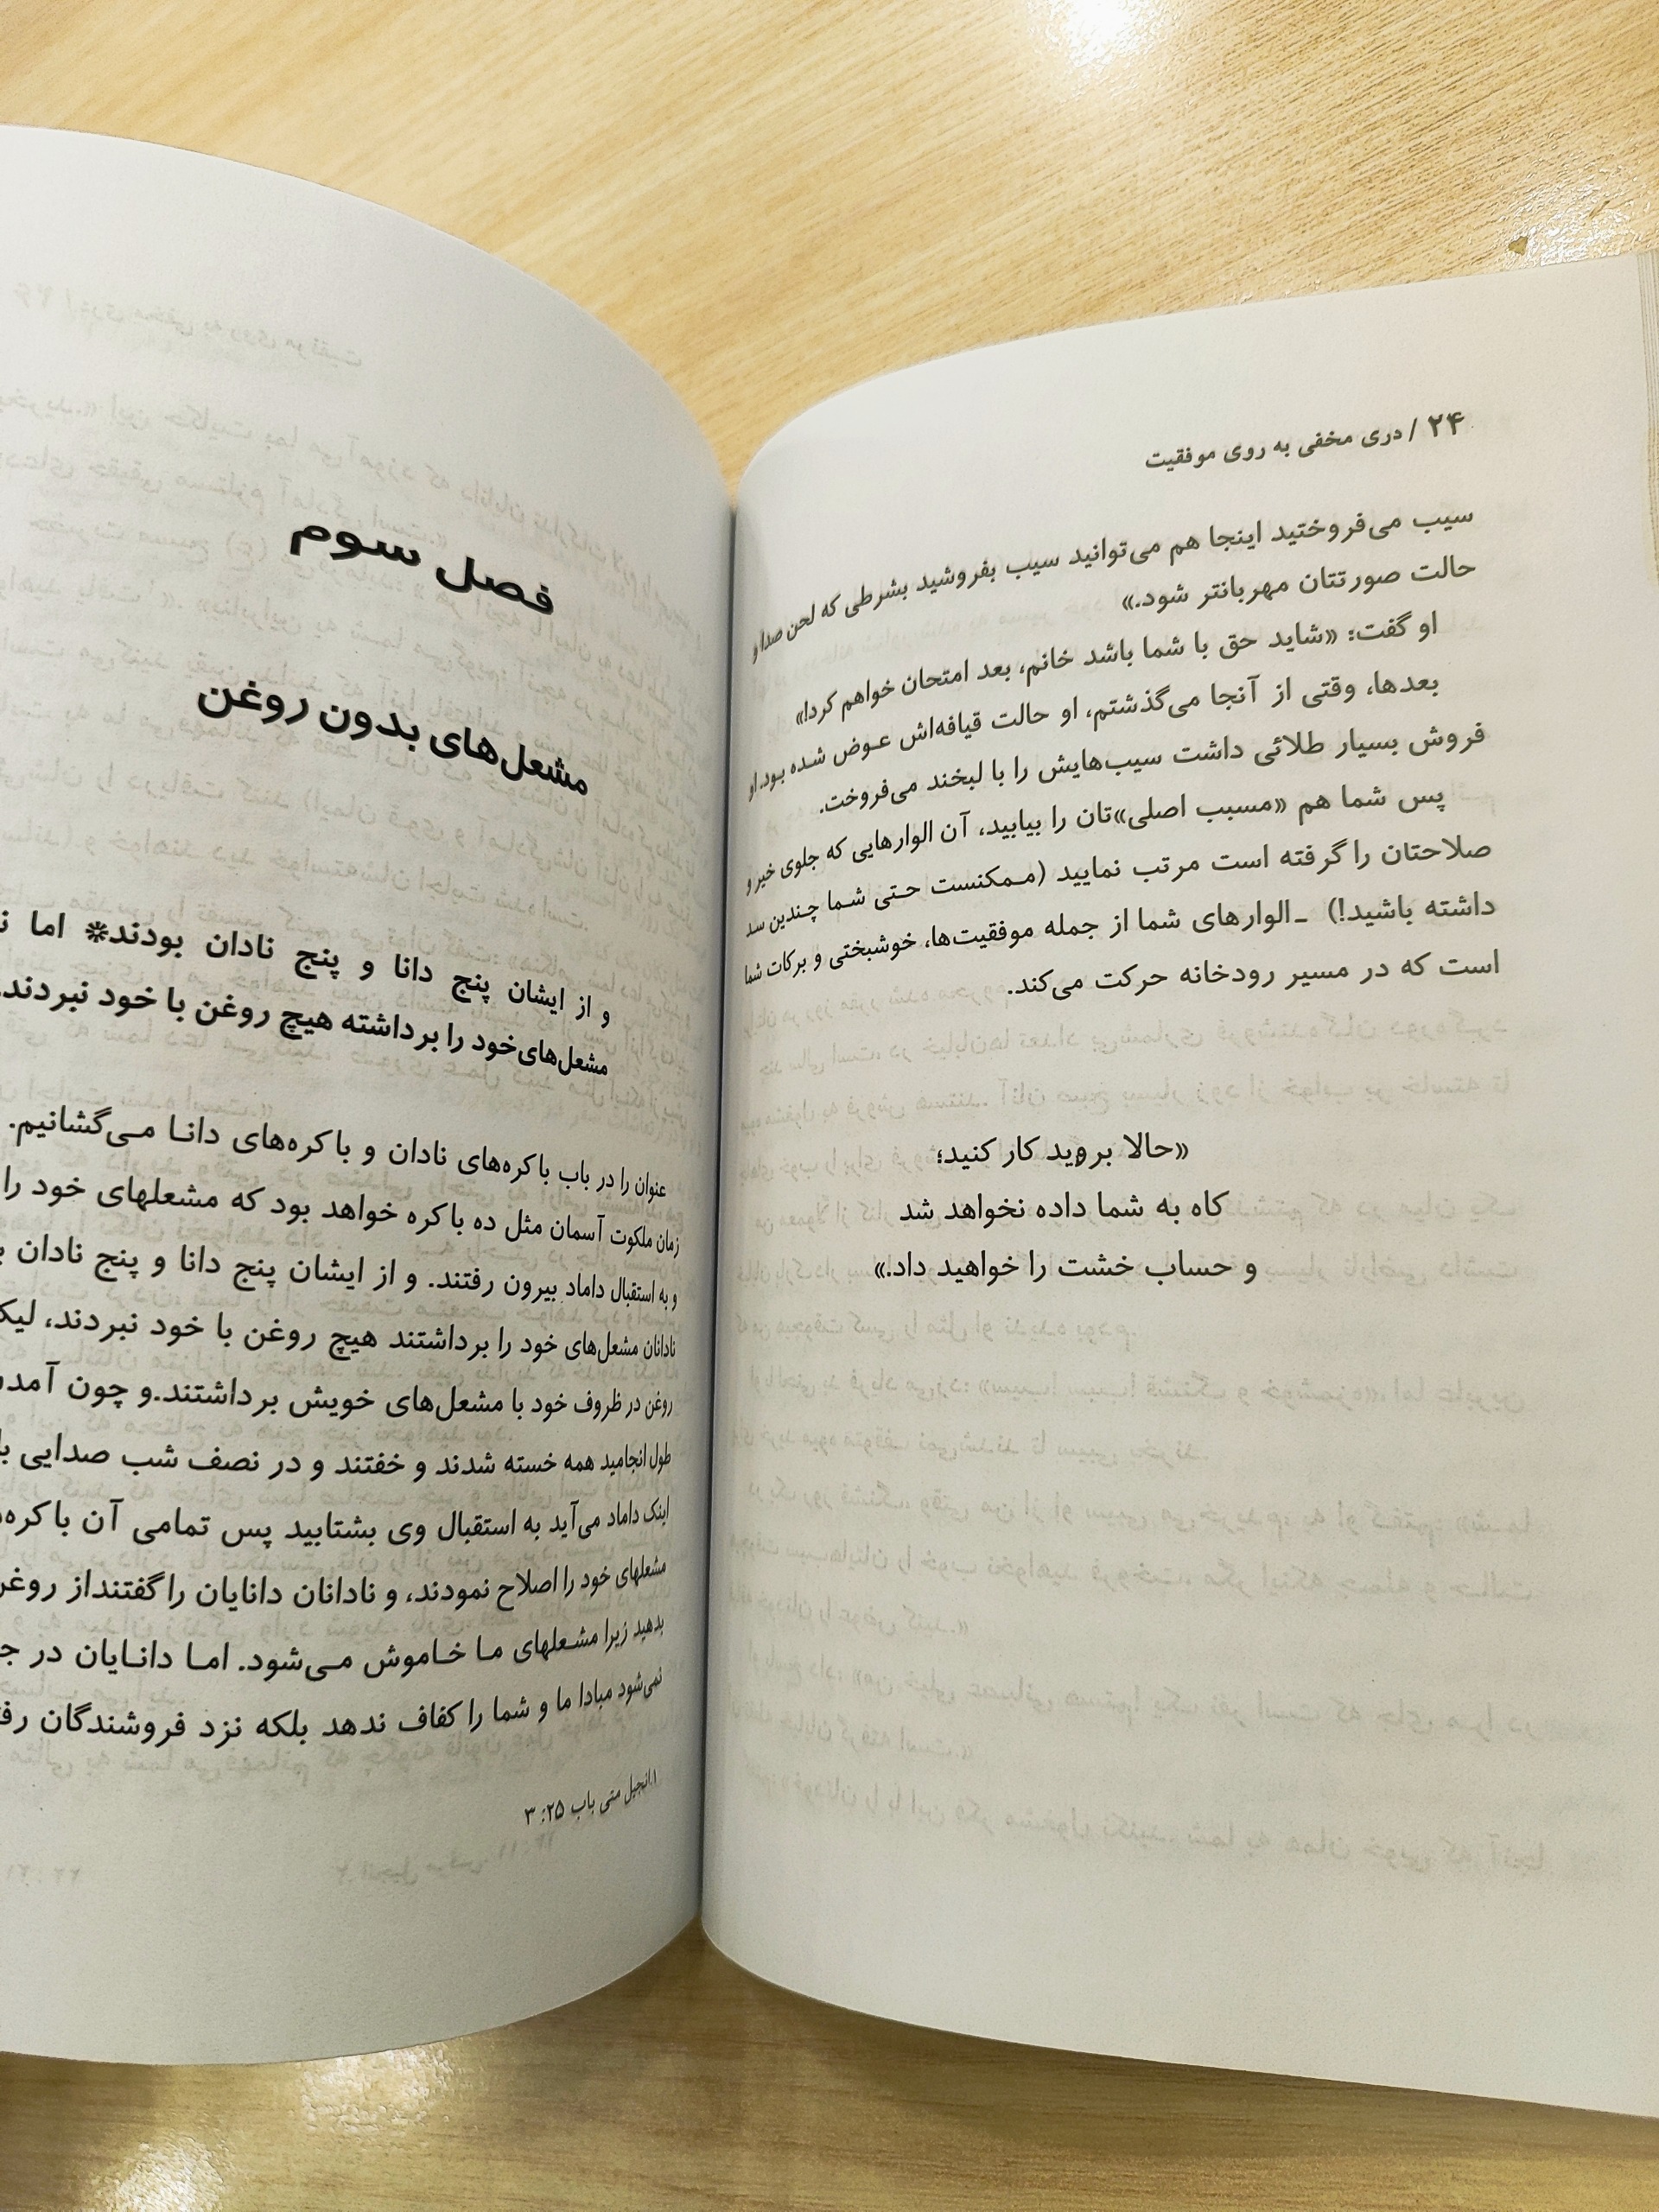 ۲۴ / دری مخفی به روی موفقیت
سیب می‌فروختید اینجا هم می‌توانید سیب بفروشید بشرطی که لحن صدا و
حالت صورتتان مهربانتر شود.»
او گفت: «شاید حق با شما باشد خانم، بعد امتحان خواهم کرد!»
بعدها، وقتی از آنجا می‌گذشتم، او حالت قیافه‌اش عوض شده بود. او
فروش بسیار طلائی داشت سیب‌هایش را با لبخند می‌فروخت.
پس شما هم «مسبب اصلی»تان را بیابید، آن الوارهایی که جلوی خیر و
صلاحتان را گرفته است مرتب نمایید (ممکنست حتی شما چندین سد
داشته باشید!) ـ الوارهای شما از جمله موفقیت‌ها، خوشبختی و برکات شما
است که در مسیر رودخانه حرکت می‌کند.
«حالا بروید کار کنید؛
کاه به شما داده نخواهد شد
و حساب خشت را خواهید داد.»
فصل سوم
مشعل‌های بدون روغن
و از ایشان پنج دانا و پنج نادان بودند* اما
مشعل‌های‌خود را برداشته هیچ روغن با خود نبردند.
عنوان را در باب باکره‌های نادان و باکره‌های دانا می‌گشانیم.
زمان ملکوت آسمان مثل ده باکره خواهد بود که مشعلهای خود را
و به استقبال داماد بیرون رفتند. و از ایشان پنج دانا و پنج نادان
نادانان مشعل‌های خود را برداشتند هیچ روغن با خود نبردند،
روغن در ظروف خود با مشعل‌های خویش برداشتند.و چون
طول انجامید همه خسته شدند و خفتند و در نصف شب صدایی
اینک داماد می‌آید به استقبال وی بشتابید پس تمامی آن
مشعلهای خود را اصلاح نمودند، و نادانان دانایان را گفتنداز
بدهید زیرا مشعلهای ما خاموش می‌شود. اما دانایان در
نمی‌شود مبادا ما و شما را کفاف ندهد بلکه نزد فروشندگان
۱.انجیل متی باب ۲۵: ۳